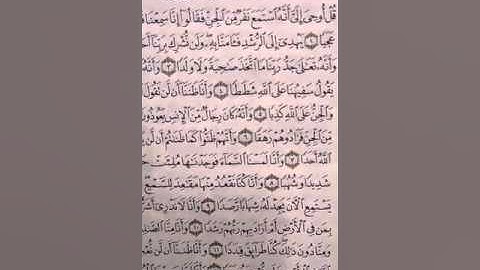 قُلْ أُوحِىَ إِلَىَّ أَنَّهُ ٱسْتَمَعَ نَفَرٌ مِّنَ ٱلْجِنِّ فَقَالُوٓا۟ إِنَّا سَمِعْنَا
عَجَبًا ١ يَهْدِىٓ إِلَى ٱلرُّشْدِ فَـَٔامَنَّا بِهِۦ وَلَن نُّشْرِكَ بِرَبِّنَآ
وَأَنَّهُۥ تَعَـٰلَىٰ جَدُّ رَبِّنَا مَا ٱتَّخَذَ صَـٰحِبَةً وَلَا وَلَدًا ٣ وَأَنَّهُۥ
يَقُولُ سَفِيهُنَا عَلَى ٱللَّهِ شَطَطًا ٤ وَأَنَّا ظَنَنَّآ أَن لَّن تَقُولَ
وَٱلْجِنُّ عَلَى ٱللَّهِ كَذِبًا ٥ وَأَنَّهُۥ كَانَ رِجَالٌ مِّنَ ٱلْإِنسِ يَعُوذُونَ
مِّنَ ٱلْجِنِّ فَزَادُوهُمْ رَهَقًا ٦ وَأَنَّهُمْ ظَنُّوا۟ كَمَا ظَنَنتُمْ أَن لَّن
ٱللَّهُ أَحَدًا ٧ وَأَنَّا لَمَسْنَا ٱلسَّمَآءَ فَوَجَدْنَـٰهَا مُلِئَتْ
شَدِيدًا وَشُهُبًا ٨ وَأَنَّا كُنَّا نَقْعُدُ مِنْهَا مَقَـٰعِدَ لِلسَّمْعِ
يَسْتَمِعِ ٱلْـَٔانَ يَجِدْ لَهُۥ شِهَابًا رَّصَدًا ٩ وَأَنَّا لَا نَدْرِىٓ
بِمَن فِى ٱلْأَرْضِ أَمْ أَرَادَ بِهِمْ رَبُّهُمْ رَشَدًا ١٠ وَأَنَّا مِنَّا
وَمِنَّا دُونَ ذَٰلِكَ كُنَّا طَرَآئِقَ قِدَدًا ١١ وَأَنَّا ظَنَنَّآ أَن لَّن